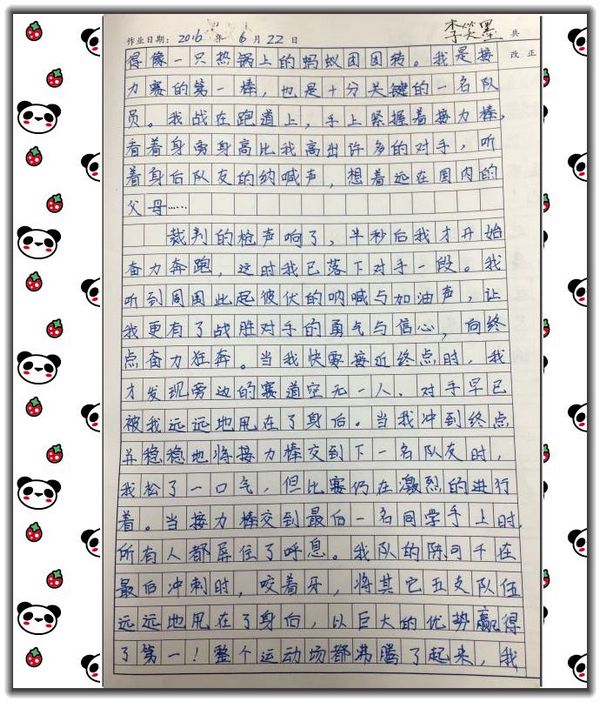 李笑墨 共
作业日期：2016年6月22日 改正
得像一只热锅上的蚂蚁团团转。我是接
力赛的第一棒，也是十分关键的一名队
员。我战在跑道上，手上紧握着接力棒，
看着身旁身高比我高出许多的对手，听
着身后队友的纳喊声，想着远在国内的
父母……
裁判的枪声响了，半秒后我才开始
奋力奔跑，这时我已落下对手一段。我
听到周围此起彼伏的呐喊与加油声，让
我更有了战胜对手的勇气与信心，向终
点奋力狂奔。当我快要接近终点时，我
才发现旁边的赛道空无一人，对手早已
被我远远地甩在了身后。当我冲到终点
并稳稳地将接力棒交到下一名队友时，
我松了一口气，但比赛仍在激烈的进行
着。当接力棒交到最后一名同学手上时，
所有人都屏住了呼息。我队的陈可千在
最后冲刺时，咬着牙，将其它五支队伍
远远地甩在了身后，以巨大的优势赢得
了第一！整个运动场都沸腾了起来，我